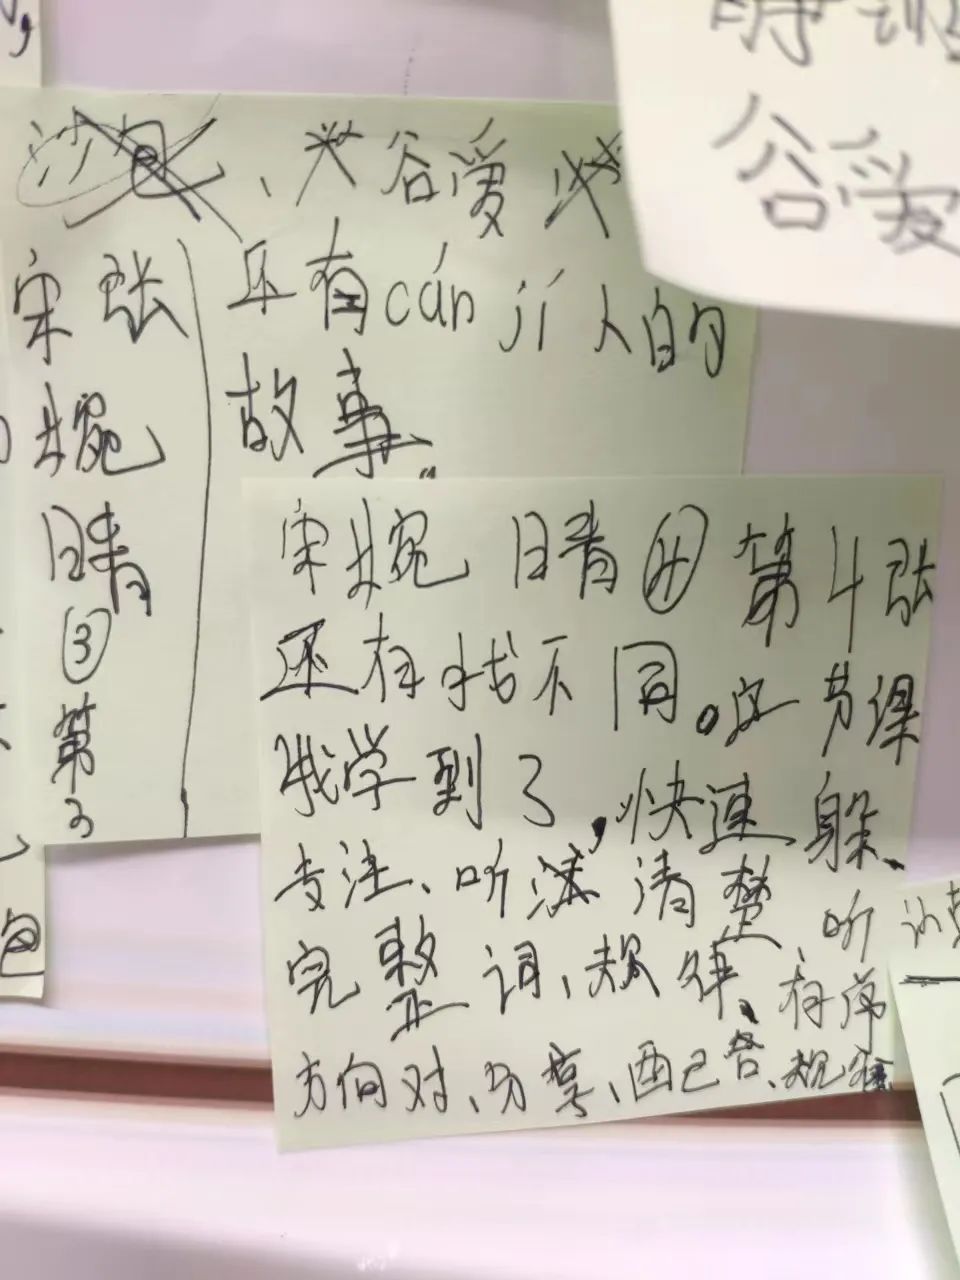 谷爱
还有cán jí人的
故事
宋 张
婉
晴
③
第
3
谷爱
宋婉晴④ 第4张
还有找不同。这节课
我学到了,快速躲、
专注、听清楚、听
完整词、规律、有序
方向对、功享、配合、规律